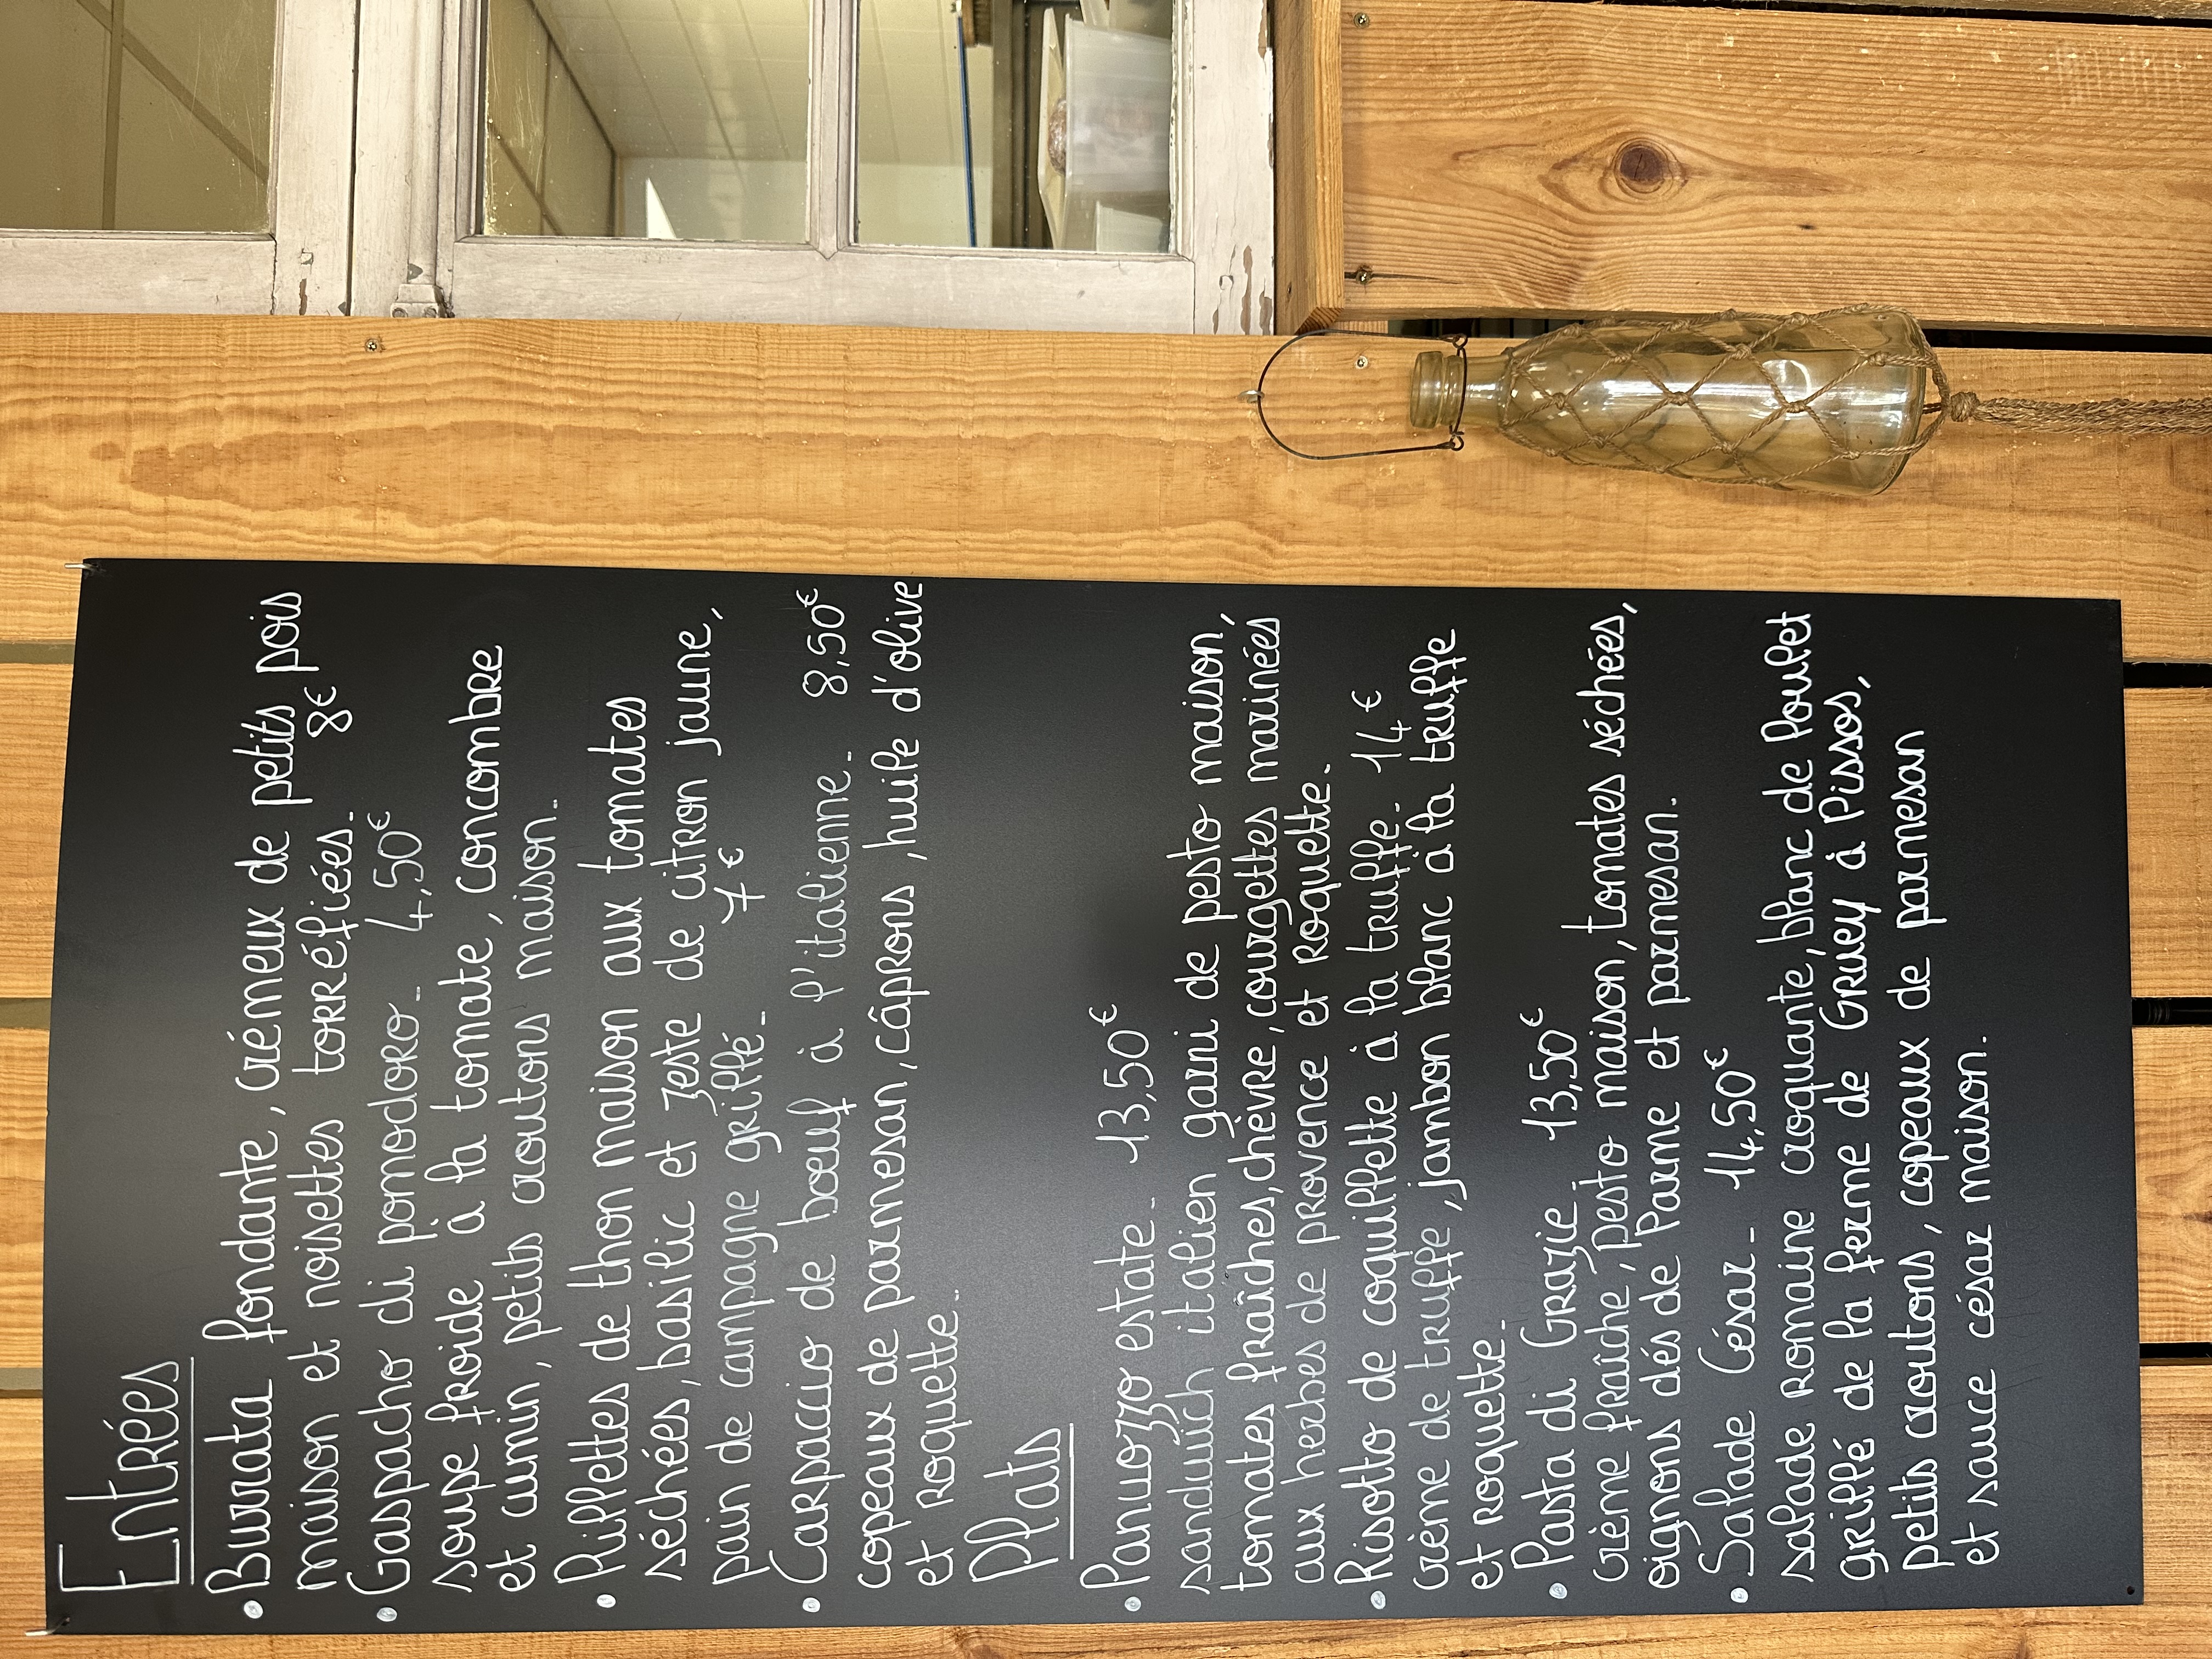 Entrées
• Burrata fondante, crémeux de petits pois
maison et noisettes torréfiées. 8€
• Gaspacho di pomodoro - 4,50€
soupe froide à la tomate, concombre
et cumin, petits croutons maison.
• Rillettes de thon maison aux tomates
séchées, basilic et zeste de citron jaune,
pain de campagne grillé - 7€
• Carpaccio de boeuf à l'italienne - 8,50€
copeaux de parmesan, câprons, huile d'olive
et roquette.
Plats
• Panuozzo estate - 13,50€
sandwich italien garni de pesto maison,
tomates fraîches, chèvre, courgettes marinées
aux herbes de provence et roquette.
• Risotto de coquillette à la truffe - 14€
crème de truffe, jambon blanc à la truffe
et roquette.
• Pasta di Grazie - 13,50€
crème fraîche, pesto maison, tomates séchées,
oignons dés de Parme et parmesan.
• Salade César - 14,50€
salade romaine croquante, blanc de Poulet
grillé de la ferme de Gruey à Pissos,
petits croutons, copeaux de parmesan
et sauce césar maison.